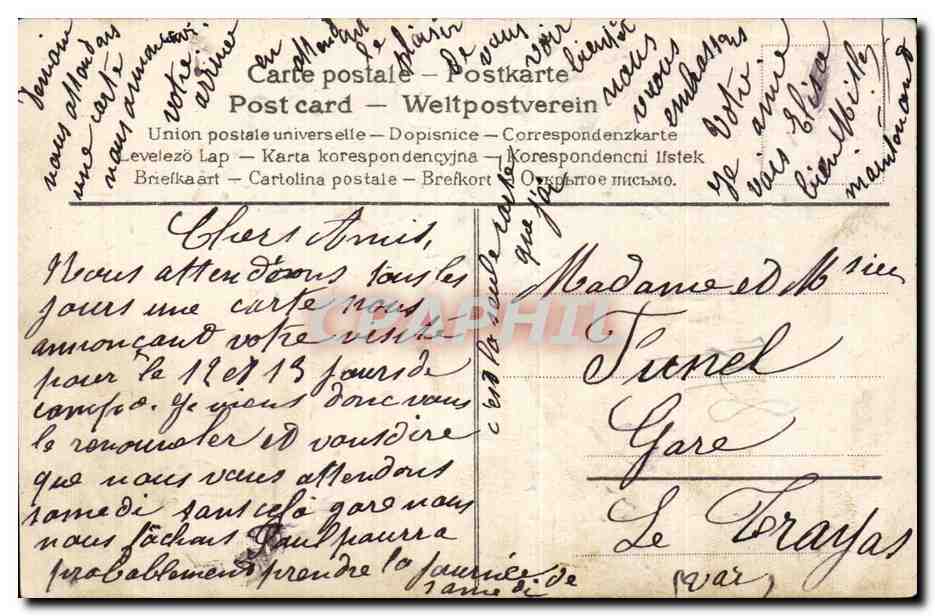 Carte postale — Postkarte
Post card — Weltpostverein
Union postale universelle — Dopisnice — Correspondenzkarte
Levelezö Lap — Karta korespondencyjna — Korespondencni listek
Briefkaart — Cartolina postale — Brefkort — Открытое письмо.
Chers Amis,
Nous attendions tous les
jours une carte nous
annonçant votre visite
pour le 12 et 13 jours de
Je viens donc vous
le renouveler et vous dire
que nous vous attendons
samedi sans cela gare nous
nous fâchons Paul pourra
probablement prendre la journée de
samedi
demain
nous attendons
une carte
nous annonçant
votre
arrivée
en
attendant
le
plaisir
de vous
voir
bientôt
nous
vous
embrassons
Votre
amie
Elisa
Je
vais
bien
maintenant
c'est la seule carte
que j'ai
Madame et Msieu
Funel
Gare
Le Trayas
(Var)
CPAPHIL